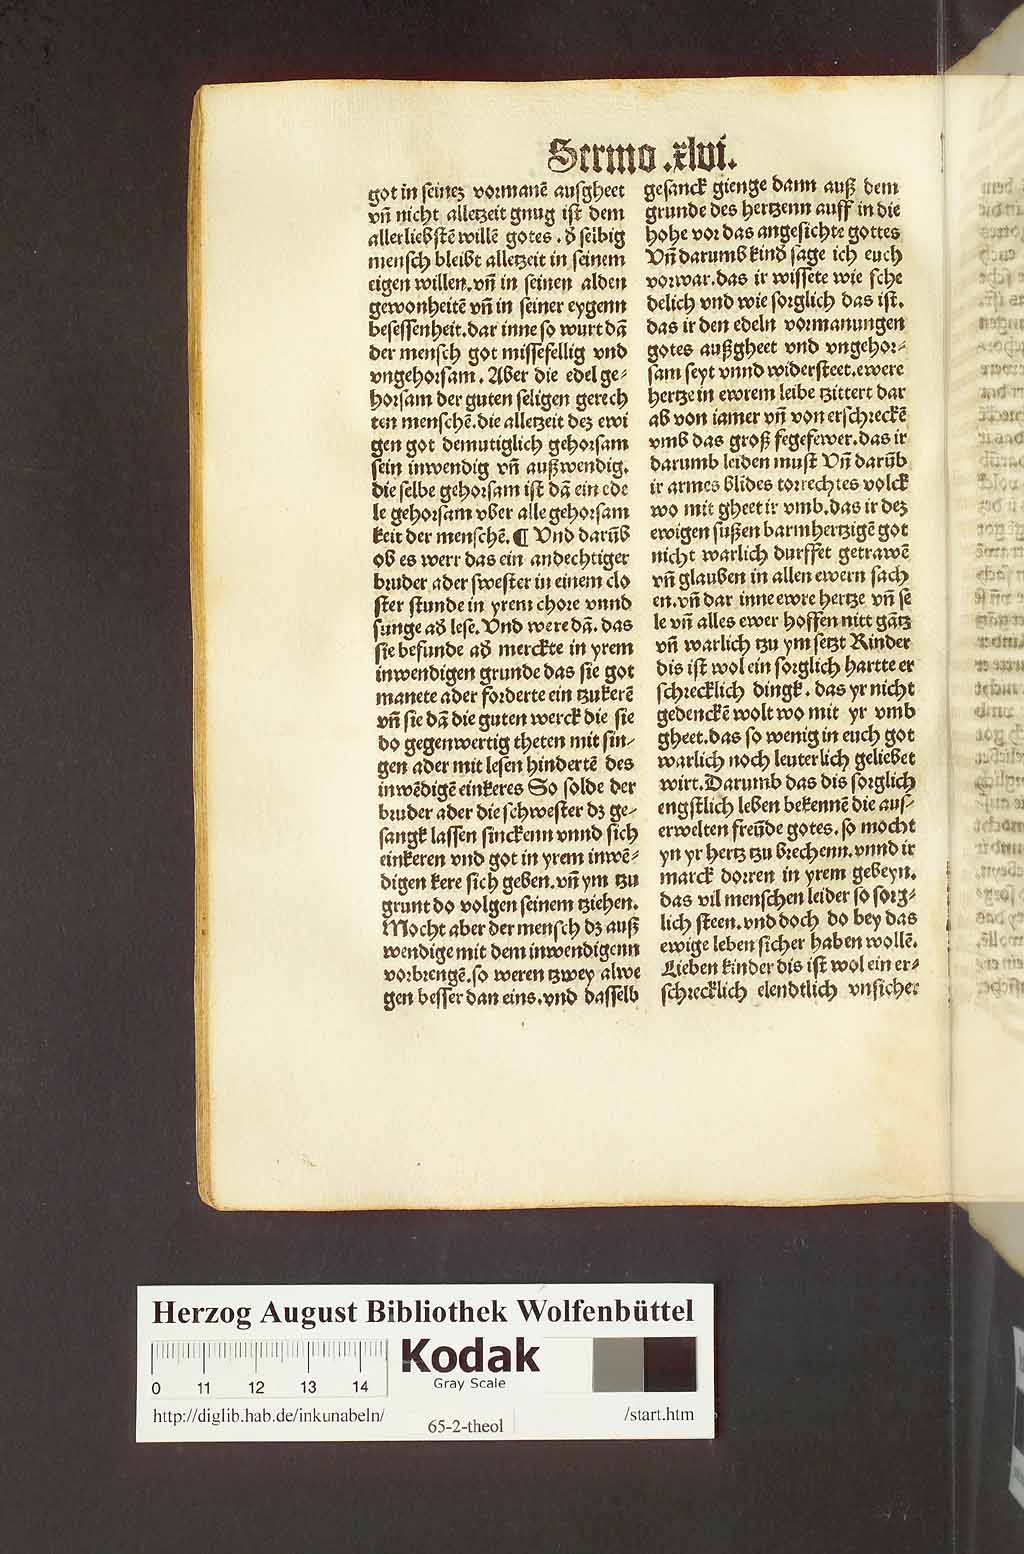 Sermo .xlvi.
got in seineʒ vormanē ausgheet
vn̄ nicht alletzeit gnug ist dem
allerliebstē willē gotes . d̕ selbig
mensch bleibt alletzeit in seinem
eigen willen. vn̄ in seinen alden
gewonheitē vn̄ in seiner eygenn
besessenheit. dar inne so wurt dā
der mensch got missefellig vnd
vngehorsam . Aber die edel ge⸗
horsam der guten seligen gerech
ten menschē. die alletzeit deʒ ewi
gen got demutiglich gehorsam
sein inwendig vn̄ außwendig.
die selbe gehorsam ist dā ein ede
le gehorsam vber alle gehorsam
keit der menschē. ¶ Vnd darūb
ob es werr das ein andechtiger
bruder ader swester in einem clo
ster stunde in yrem chore vnnd
sunge ad̕ lese. Vnd were dā. das
sie befunde ad̕ merckte in yrem
inwendigen grunde das sie got
manete ader forderte ein tzukerē
vn̄ sie dā die guten werck die sie
do gegenwertig theten mit sin⸗
gen ader mit lesen hindertē des
inwēdigē einkeres So solde der
bruder ader die schwester dʒ ge⸗
sangk lassen sinckenn vnnd sich
einkeren vnd got in yrem inwē⸗
digen kere sich geben. vn̄ ym tzu
grunt do volgen seinem tziehen.
Mocht aber der mensch dʒ auß
wendige mit dem inwendigenn
vorbrengē. so weren tzwey alwe
gen besser dan eins. vnd dasselb
gesanck gienge dann auß dem
grunde des hertzenn auff in die
hohe vor das angesichte gottes
Vn̄ darumb kind sage ich euch
vorwar. das ir wissete wie sche
delich vnd wie sorglich das ist.
das ir den edeln vormanungen
gotes außgheet vnd vngehor⸗
sam seyt vnnd widersteet. ewere
hertze in ewrem leibe tzittert dar
ab von iamer vn̄ von erschreckē
vmb das groß fegefewer. das ir
darumb leiden must Vn̄ darūb
ir armes blides torrechtes volck
wo mit gheet ir vmb. das ir deʒ
ewigen sußen barmhertzigē got
nicht warlich durffet getrawē
vn̄ glauben in allen ewern sach
en. vn̄ dar inne ewre hertze vn̄ se
le vn̄ alles ewer hoffen nitt gātz
vn̄ warlich tzu ym setzt Kinder
dis ist wol ein sorglich hartte er
schrecklich dingk . das yr nicht
gedenckē wolt wo mit yr vmb
gheet. das so wenig in euch got
warlich noch leuterlich geliebet
wirt. Darumb das dis sorglich
engstlich leben bekennē die aus⸗
erwelten freūde gotes. so mocht
yn yr hertz tzu brechenn. vnnd ir
marck dorren in yrem gebeyn.
das vil menschen leider so sorg⸗
lich steen. vnd doch do bey das
ewige leben sicher haben wollē.
Lieben kinder dis ist wol ein er⸗
schrecklich elendtlich vnsicher
Herzog August Bibliothek Wolfenbüttel
Kodak
Gray Scale
0 11 12 13 14
http://diglib.hab.de/inkunabeln/
65-2-theol
/start.htm